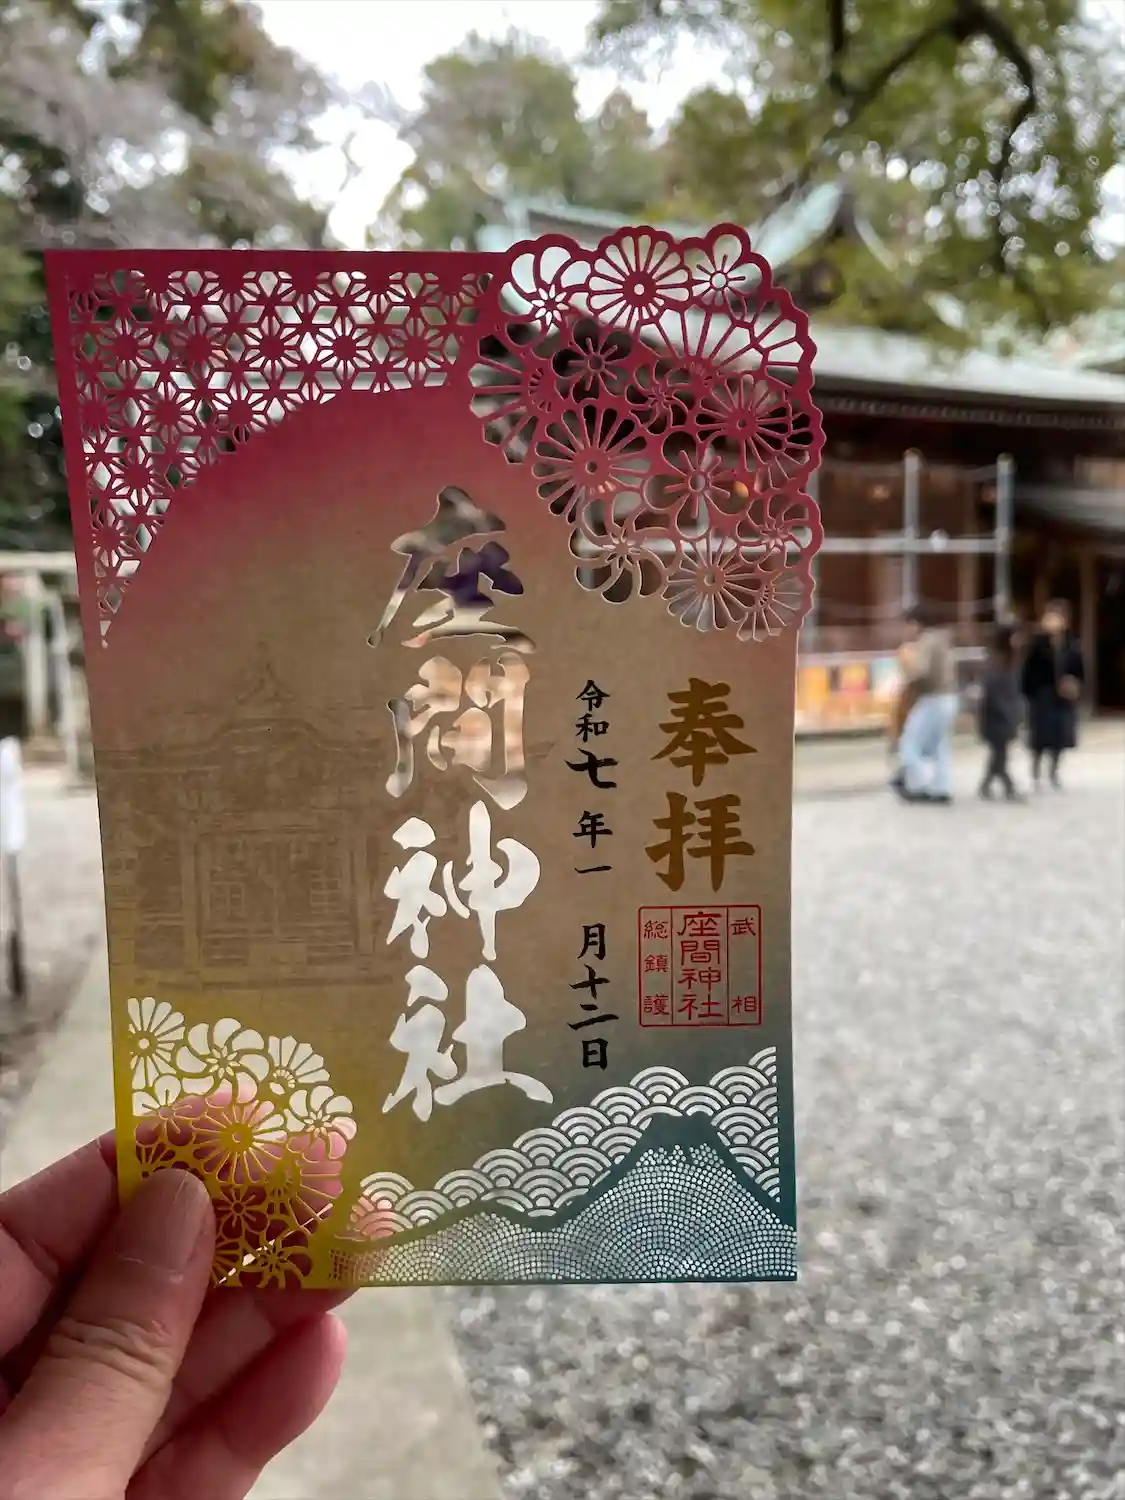 奉拝
武相
座間神社
総鎮護
令和七年一月十二日
座間神社